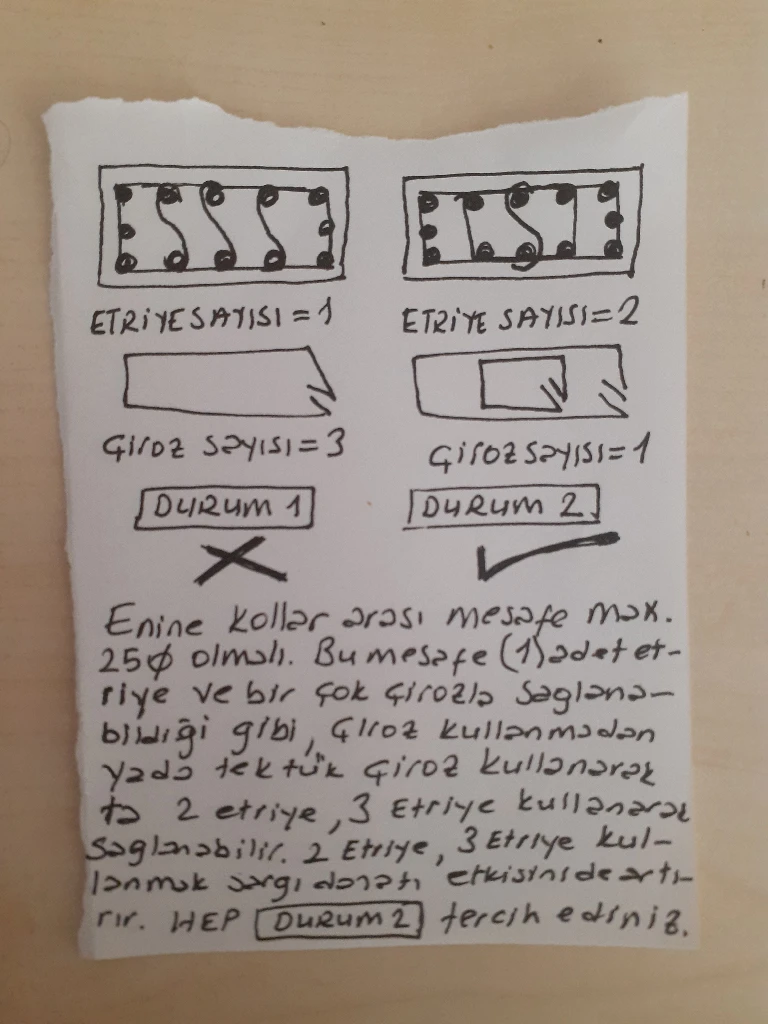 ETRİYE SAYISI = 1
ETRİYE SAYISI = 2
Çiroz sayısı = 3
Çiroz sayısı = 1
DURUM 1
DURUM 2
Enine kollar arası mesafe max.
25ϕ olmalı. Bu mesafe (1) adet et-
riye ve bir çok çirozla sağlana-
bildiği gibi, çiroz kullanmadan
yada tek tük çiroz kullanarak
ta 2 etriye, 3 Etriye kullanarak
sağlanabilir. 2 Etriye, 3 Etriye kul-
lanmak sargı donatı etkisinide artı-
rır. HEP DURUM 2 tercih ediniz.